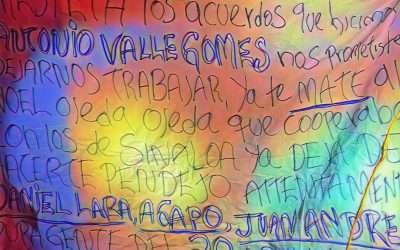 los acuerdos que hicimo
ANTONIO VALLE GOMES nos prometiste
DEJARNOS TRABAJAR, ya te MATE a
NOEL ojeda ojeda que cooperaba
CON los de SINALOA ya DEJA DE
HACERTE PENDEJO ATTENTAMENT
DANIEL LARA, AGAPO, JUAN ANDRE
GENTE DEL 20